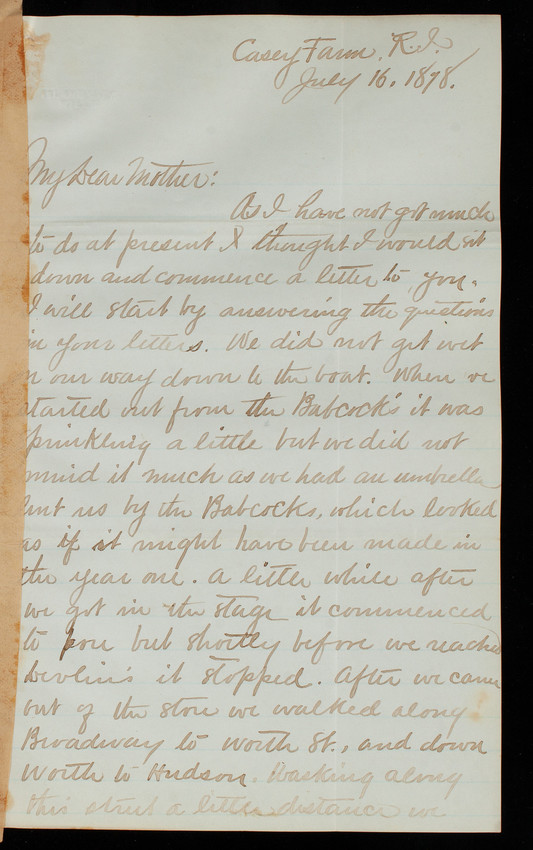 Casey Farm, R.I.
July 16, 1878.
My Dear Mother:
As I have not got much
to do at present I thought I would sit
down and commence a letter to you.
I will start by answering the questions
in your letters. We did not get wet
on our way down to the boat. When we
started out from the Babcock's it was
sprinkling a little but we did not
mind it much as we had an umbrella
lent us by the Babcocks, which looked
as if it might have been made in
the year one. A little while after
we got in the stage it commenced
to pour but shortly before we reached
Devlin's it stopped. After we came
out of the store we walked along
Broadway to Worth St., and down
Worth to Hudson. Walking along
this street a little distance we